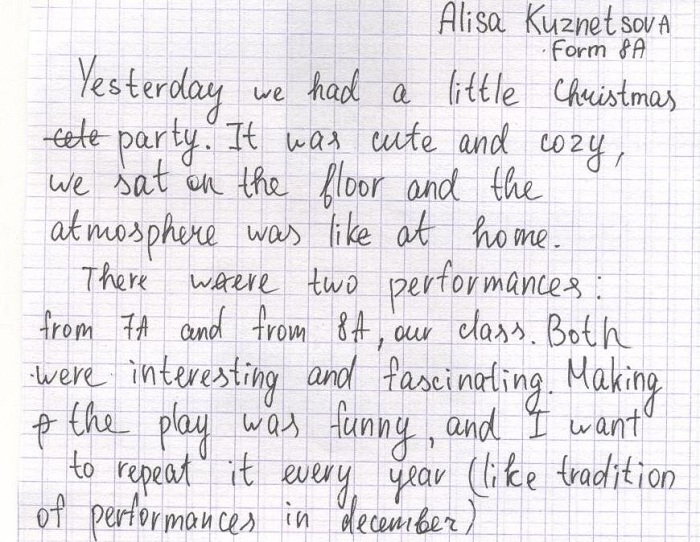 Alisa Kuznetsova
Form 8A
Yesterday we had a little Christmas
cele party. It was cute and cozy,
we sat on the floor and the
atmosphere was like at home.
There were two performances:
from 7A and from 8A, our class. Both
were interesting and fascinating. Making
the play was funny, and I want
to repeat it every year (like tradition
of performances in december)